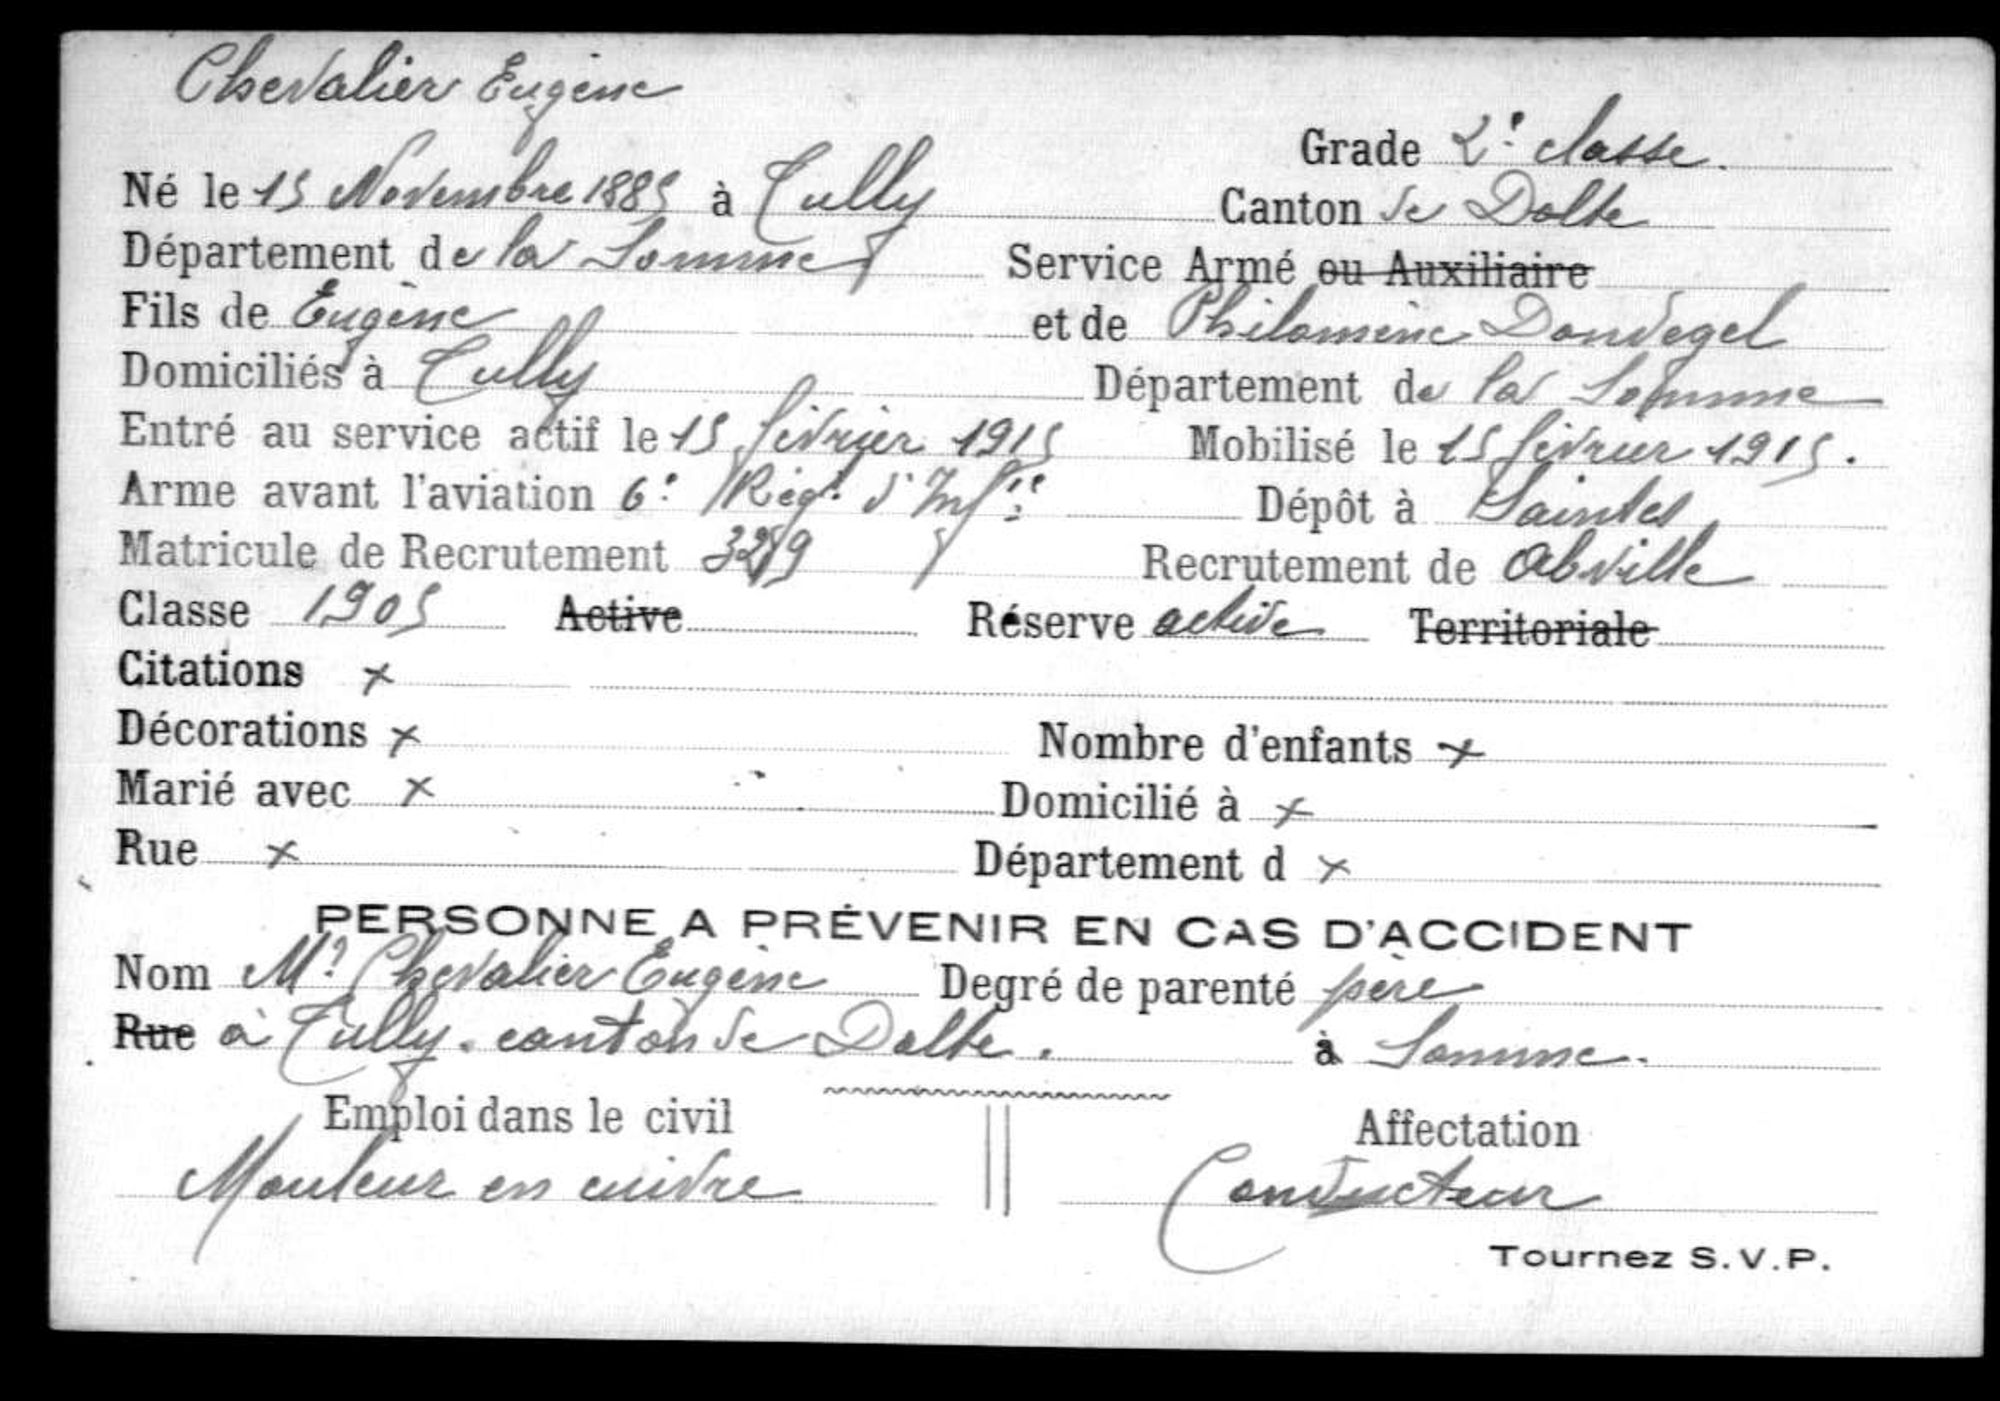 Chevalier Eugène
Grade 2e classe.
Né le 15 Novembre 1885 à Tully Canton de Dalte
Département de la Somme Service Armé ou Auxiliaire
Fils de Eugène et de Philomène Dondegel
Domiciliés à Tully Département de la Somme
Entré au service actif le 15 février 1915 Mobilisé le 15 février 1915.
Arme avant l'aviation 6e Régt d'Infie Dépôt à Saintes
Matricule de Recrutement Recrutement de Abville
Classe 1905 Active Réserve active Territoriale
Citations x
Décorations x Nombre d'enfants x
Marié avec x Domicilié à x
Rue x Département d x
PERSONNE A PRÉVENIR EN CAS D'ACCIDENT
Nom Mr Chevalier Eugène Degré de parenté père
Rue à Tully. canton de Dalte. à Somme.
Emploi dans le civil Affectation
Mouleur en cuivre Conducteur
Tournez S.V.P.